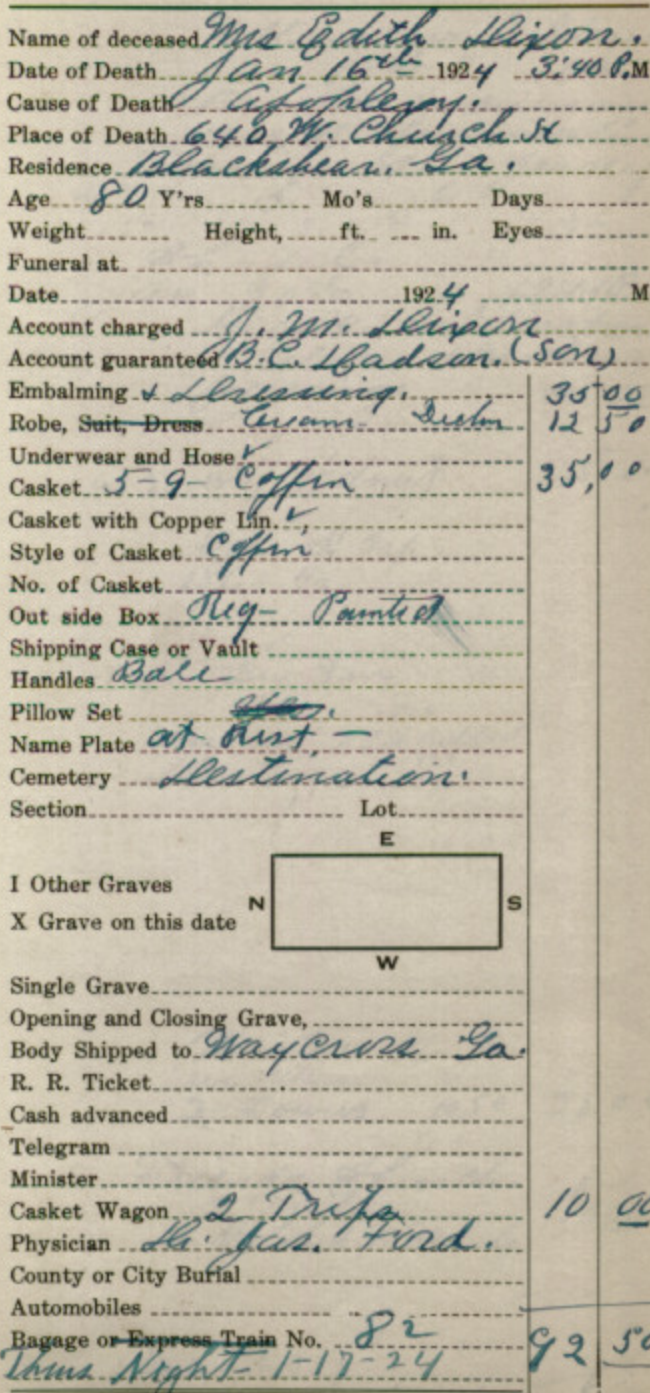 Name of deceased Mrs Edith Dixon.
Date of Death Jan 16th 1924 3:40 P.M
Cause of Death Apoplexy.
Place of Death 640 W. Church St
Residence Blackshear. Ga.
Age 80 Y'rs Mo's Days
Weight Height, ft. in. Eyes
Funeral at
Date 1924 M
Account charged J. M. Dixon
Account guaranteed B.C. Dadson. (Son)
Embalming & Dressing. 35 00
Robe, Suit, Dress Cream 12 50
Underwear and Hose ✓
Casket 5-9- Coffin 35,00
Casket with Copper Lin. ✓
Style of Casket Coffin
No. of Casket
Out side Box Reg- Painted
Shipping Case or Vault
Handles Bale
Pillow Set Yes.
Name Plate at Rest -
Cemetery Destination.
Section Lot
E
I Other Graves
N S
X Grave on this date
W
Single Grave
Opening and Closing Grave,
Body Shipped to Waycross Ga.
R. R. Ticket
Cash advanced
Telegram
Minister
Casket Wagon 2 Trips 10 00
Physician Dr. Jas. Ford.
County or City Burial
Automobiles
Bagage or Express Train No. 82 92 50
Thurs Night 1-17-24